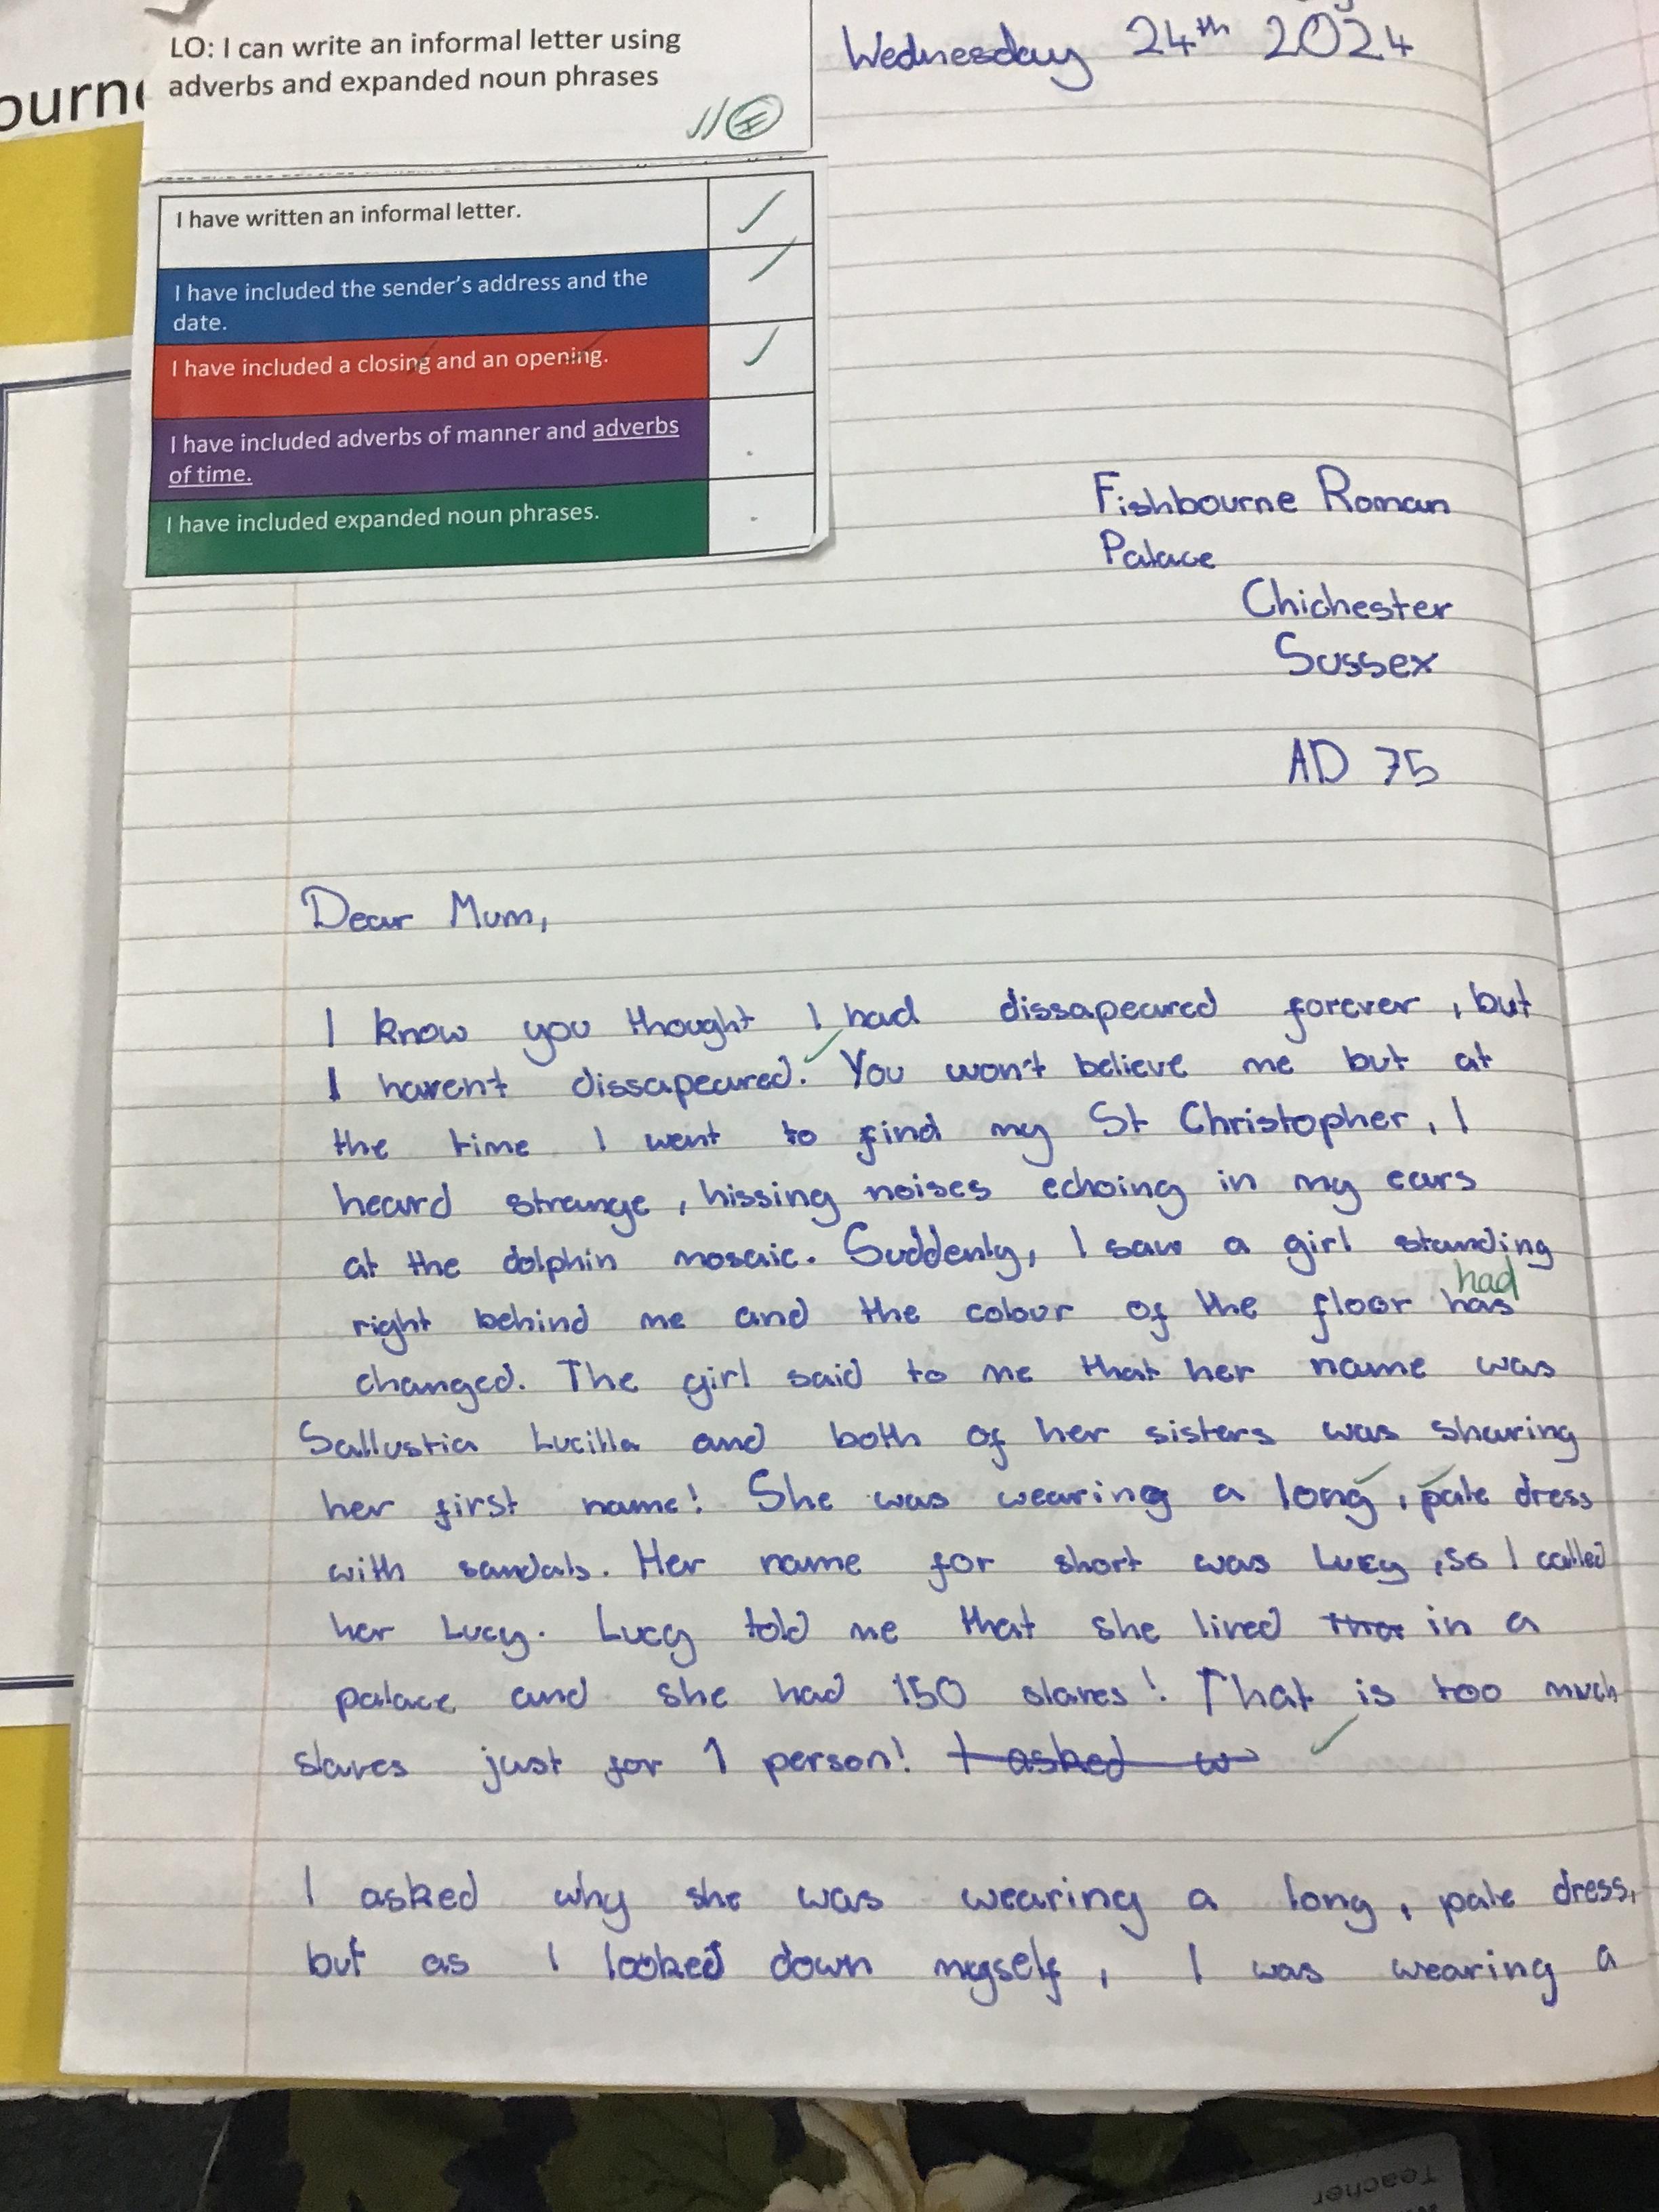 LO: I can write an informal letter using
adverbs and expanded noun phrases
I have written an informal letter.
I have included the sender's address and the
date.
I have included a closing and an opening.
I have included adverbs of manner and adverbs
of time.
I have included expanded noun phrases.
Wednesday 24th 2024
Fishbourne Roman
Palace
Chichester
Sussex
AD 75
Dear Mum,
I know you thought I had dissapeared forever, but
I havent dissapeared. You won't believe me but at
the time I went to find my St Christopher, I
heard strange, hissing noises echoing in my ears
at the dolphin mosaic. Suddenly, I saw a girl standing
had
right behind me and the colour of the floor has
changed. The girl said to me that her name was
Sallustia Lucilla and both of her sisters was sharing
her first name! She was wearing a long, pale dress
with sandals. Her name for short was Lucy, so I called
her Lucy. Lucy told me that she lived in a
palace and she had 150 slaves! That is too much
slaves just for 1 person! I asked w
I asked why she was wearing a long, pale dress,
but as I looked down myself, I was wearing a
Teacher